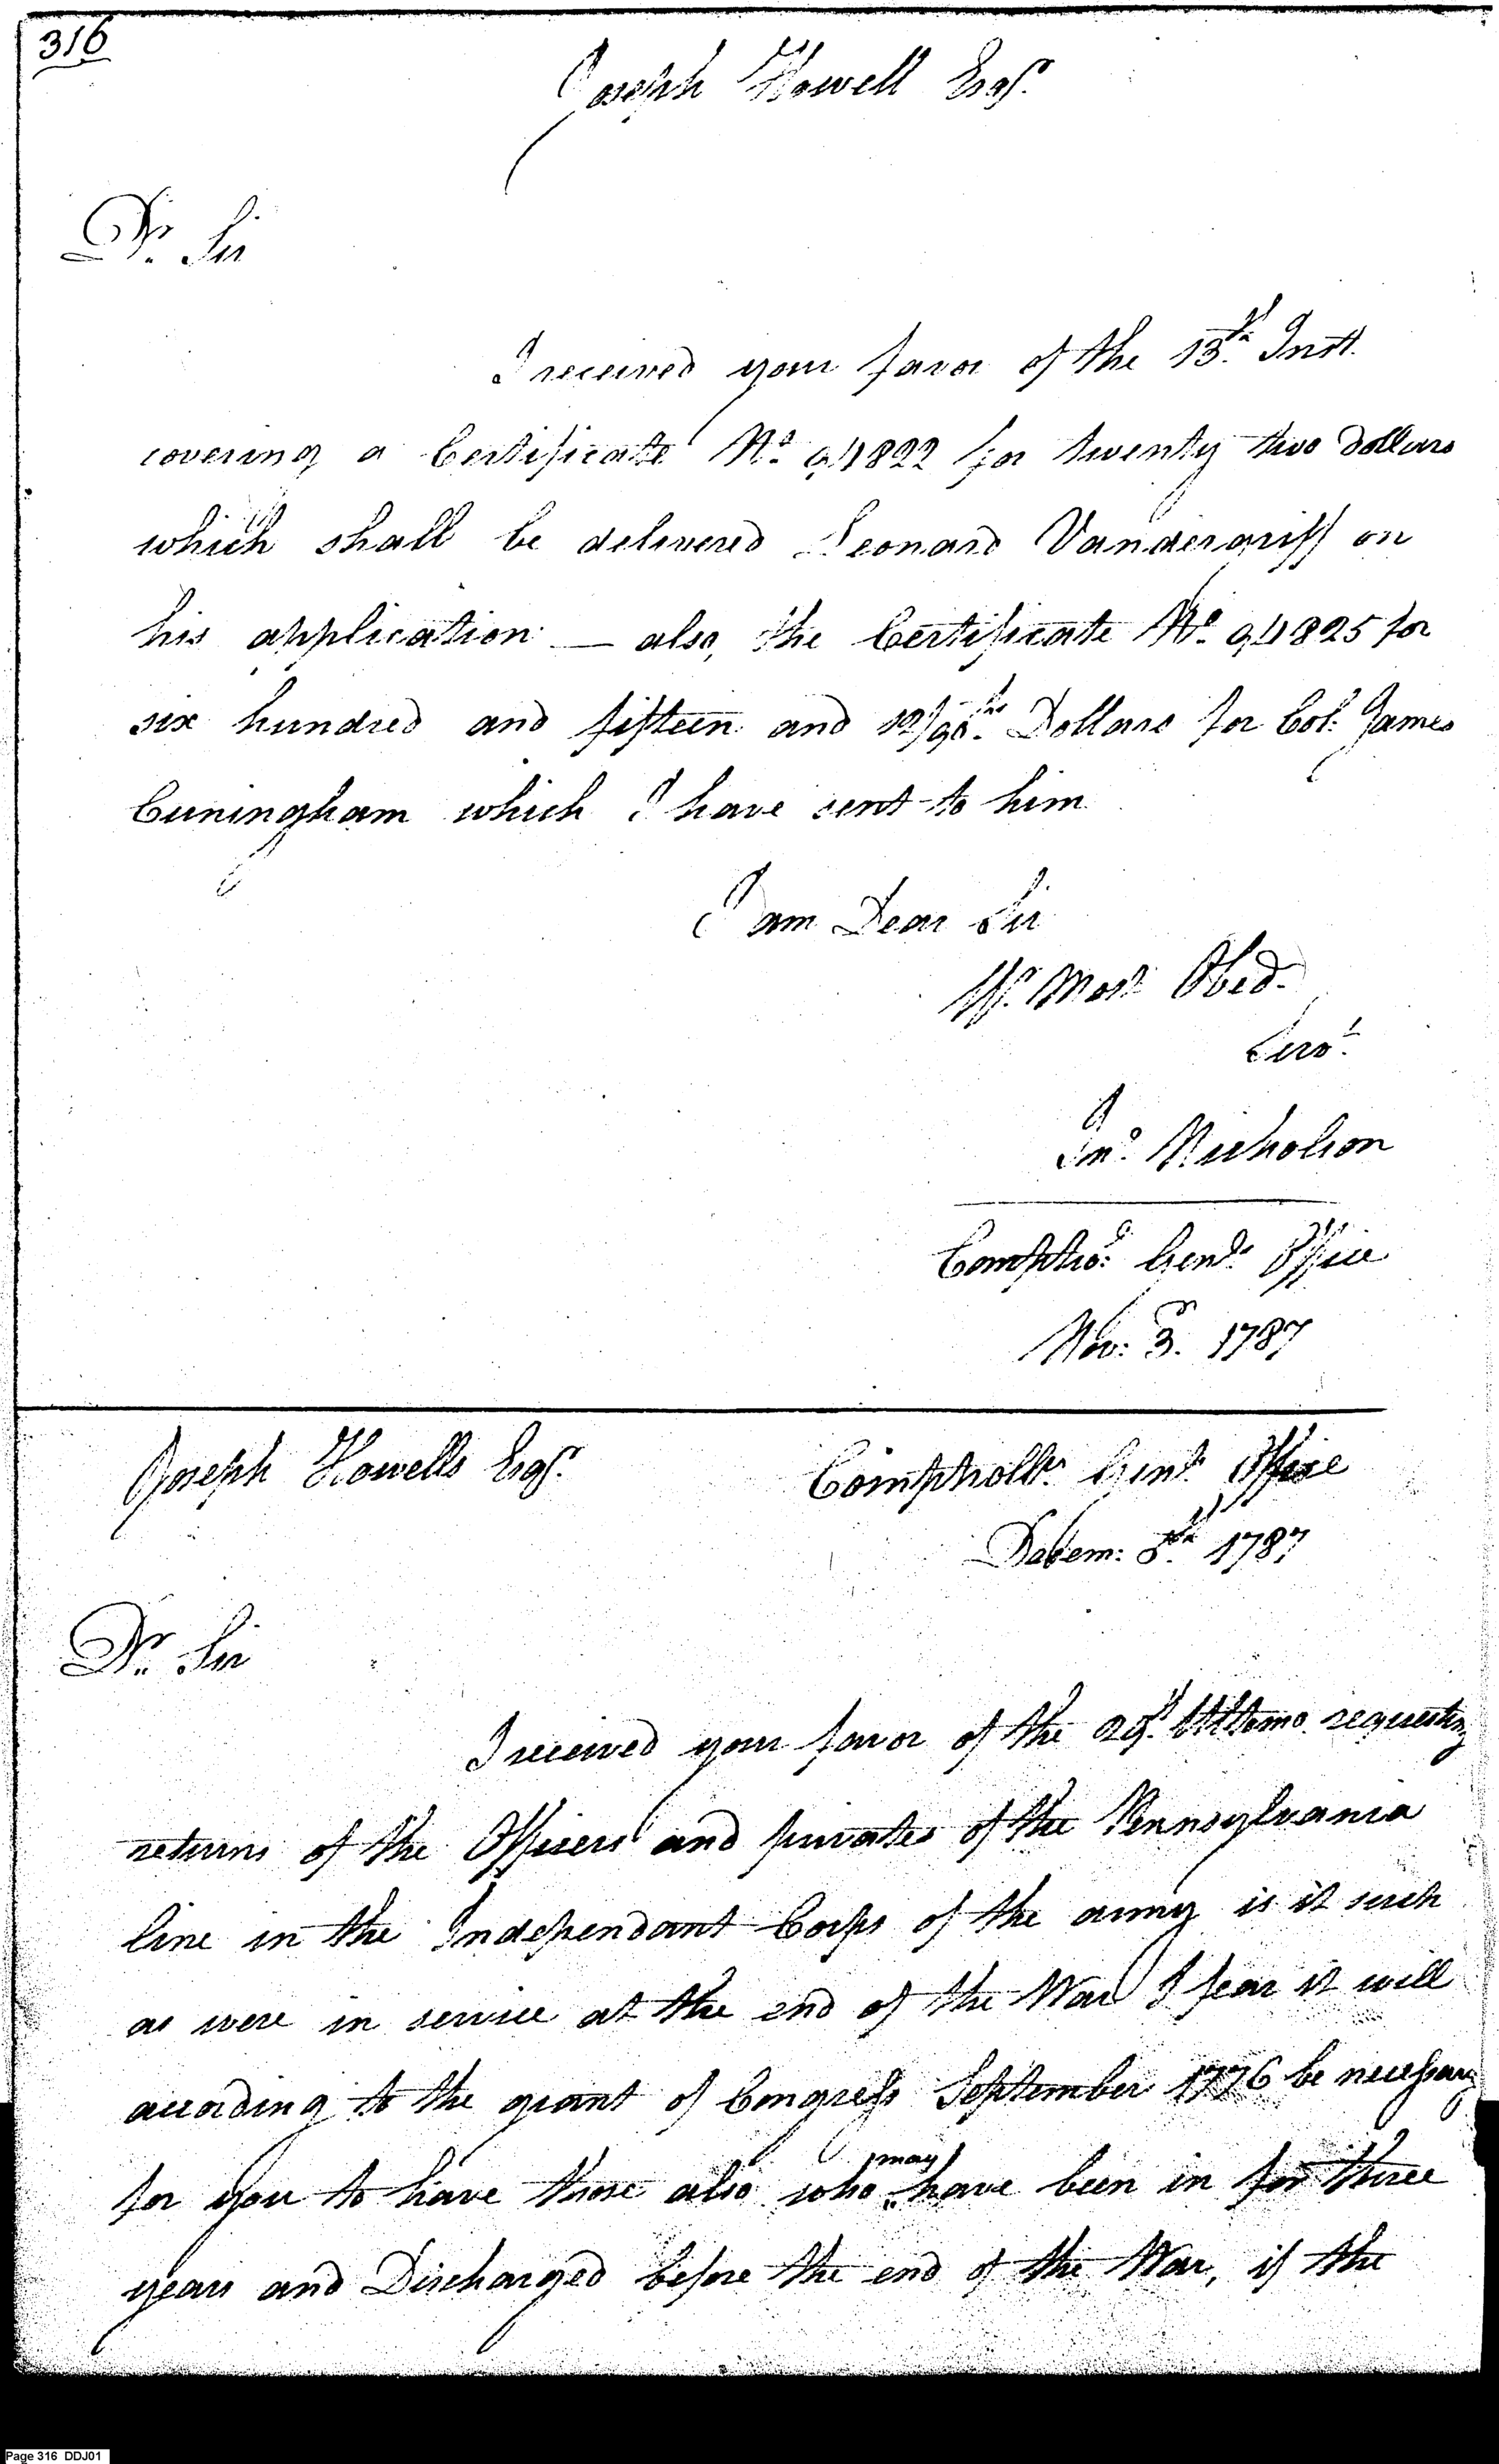 316
Joseph Howell Esqr.
Dr. Sir
I received your favor of the 13th. Inst.
covering a Certificate No. 94822 for twenty two Dollars
which shall be delivered Leonard Vandergriff on
his application — also, the Certificate No. 94825 for
six hundred and fifteen and 12/90ths. Dollars for Col. James
Cuningham which I have sent to him
I am Dear Sir
Yr. Most Obed.
Servt.
Jno. Nicholson
Comptro: Genls. Office
Nov: 3. 1787
Joseph Howells Esqr.
Comptrollrs. Genls. Office
Decem: 5th. 1787
Dr. Sir
I received your favor of the 29th. Ultemo requesting
returns of the Officers and privates of the Pennsylvania
line in the Independant Corps of the army is it such
as were in service at the end of the War I fear it will
according to the grant of Congress September 1776 be necessary
may
for you to have those also who have been in for three
years and Discharged before the end of the War, if the
Page 316 DDJ01